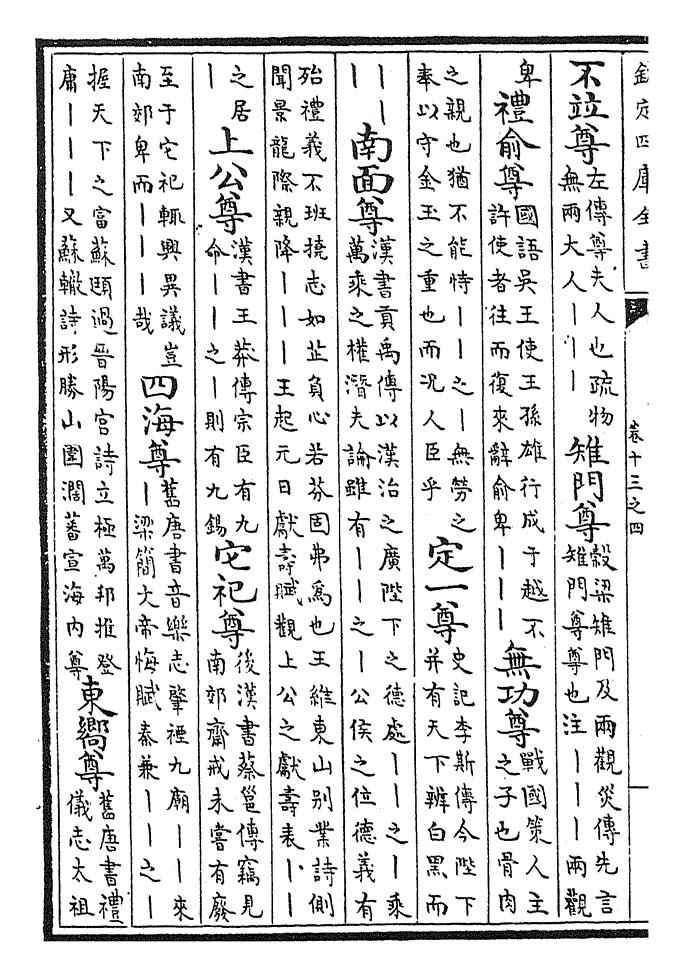 欽定四庫全書
卷十三之四
不竝尊
左傳尊夫人也疏物
無兩大人丨丨丨
雉門尊
榖梁雉門及兩觀災傳先言
雉門尊尊也注丨丨丨兩觀
卑
禮俞尊
國語吳王使王孫雄行成于越不
許使者往而復來辭俞卑丨丨丨
無功尊
戰國策人主
之子也骨肉
之親也猶不能恃丨丨之丨無勞之
奉以守金玉之重也而况人臣乎
定一尊
史記李斯傳今陛下
并有天下辨白黑而
丨
丨
南面尊
漢書貢禹傳以漢治之廣陛下之德處丨丨之丨乘
萬乘之權潛夫論雖有丨丨之丨公侯之位德義有
殆禮義不班撓志如芷負心若芬固弗爲也王維東山别業詩側
聞景龍際親降丨丨丨王起元日獻壽賦觀上公之獻壽表丨丨
之居
丨
上公尊
漢書王莽傳宗臣有九
命丨丨之丨則有九錫
它祀尊
後漢書蔡邕傳竊見
南郊齋戒未嘗有廢
至于它祀輒興異議豈
南郊卑而丨丨丨哉
四海尊
舊唐書音樂志肇禋九廟丨丨來
丨梁簡文帝悔賦秦兼丨丨之丨
握天下之富蘇頲過晉陽宮詩立極萬邦推登
庸丨丨丨又蘇轍詩形勝山圍濶蕃宣海内尊
東嚮尊
舊唐書禮
儀志太祖